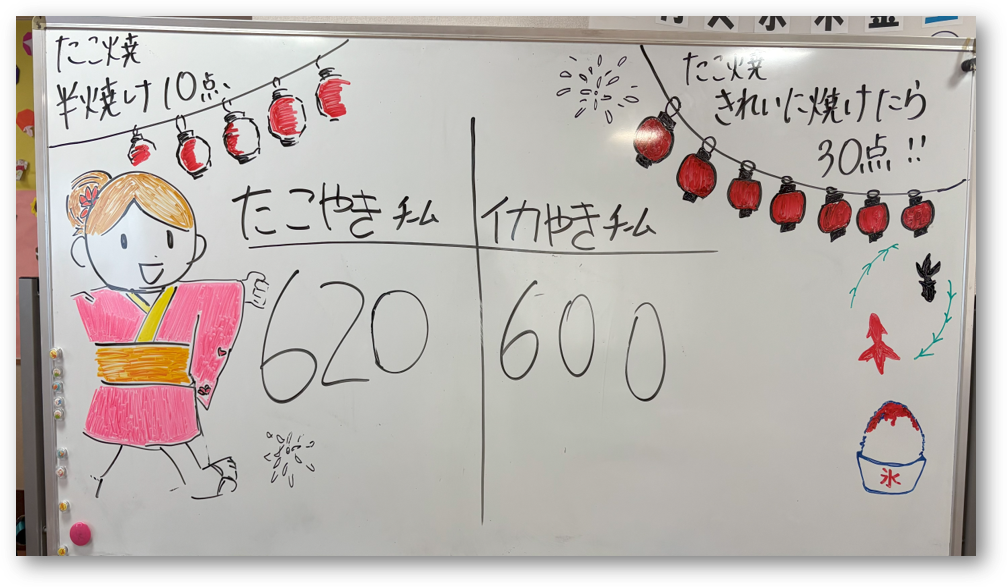 たこ焼
半焼け10点
たこ焼
きれいに焼けたら
30点!!
たこやきチーム
イカやきチーム
620
600
氷